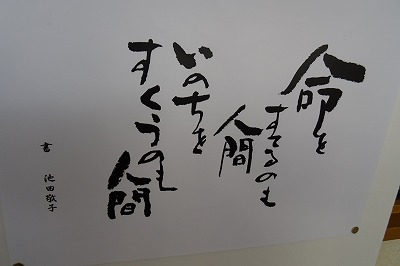 命を
すてるのも
人間
いのちを
すくうのも
人間
書 池田敬子